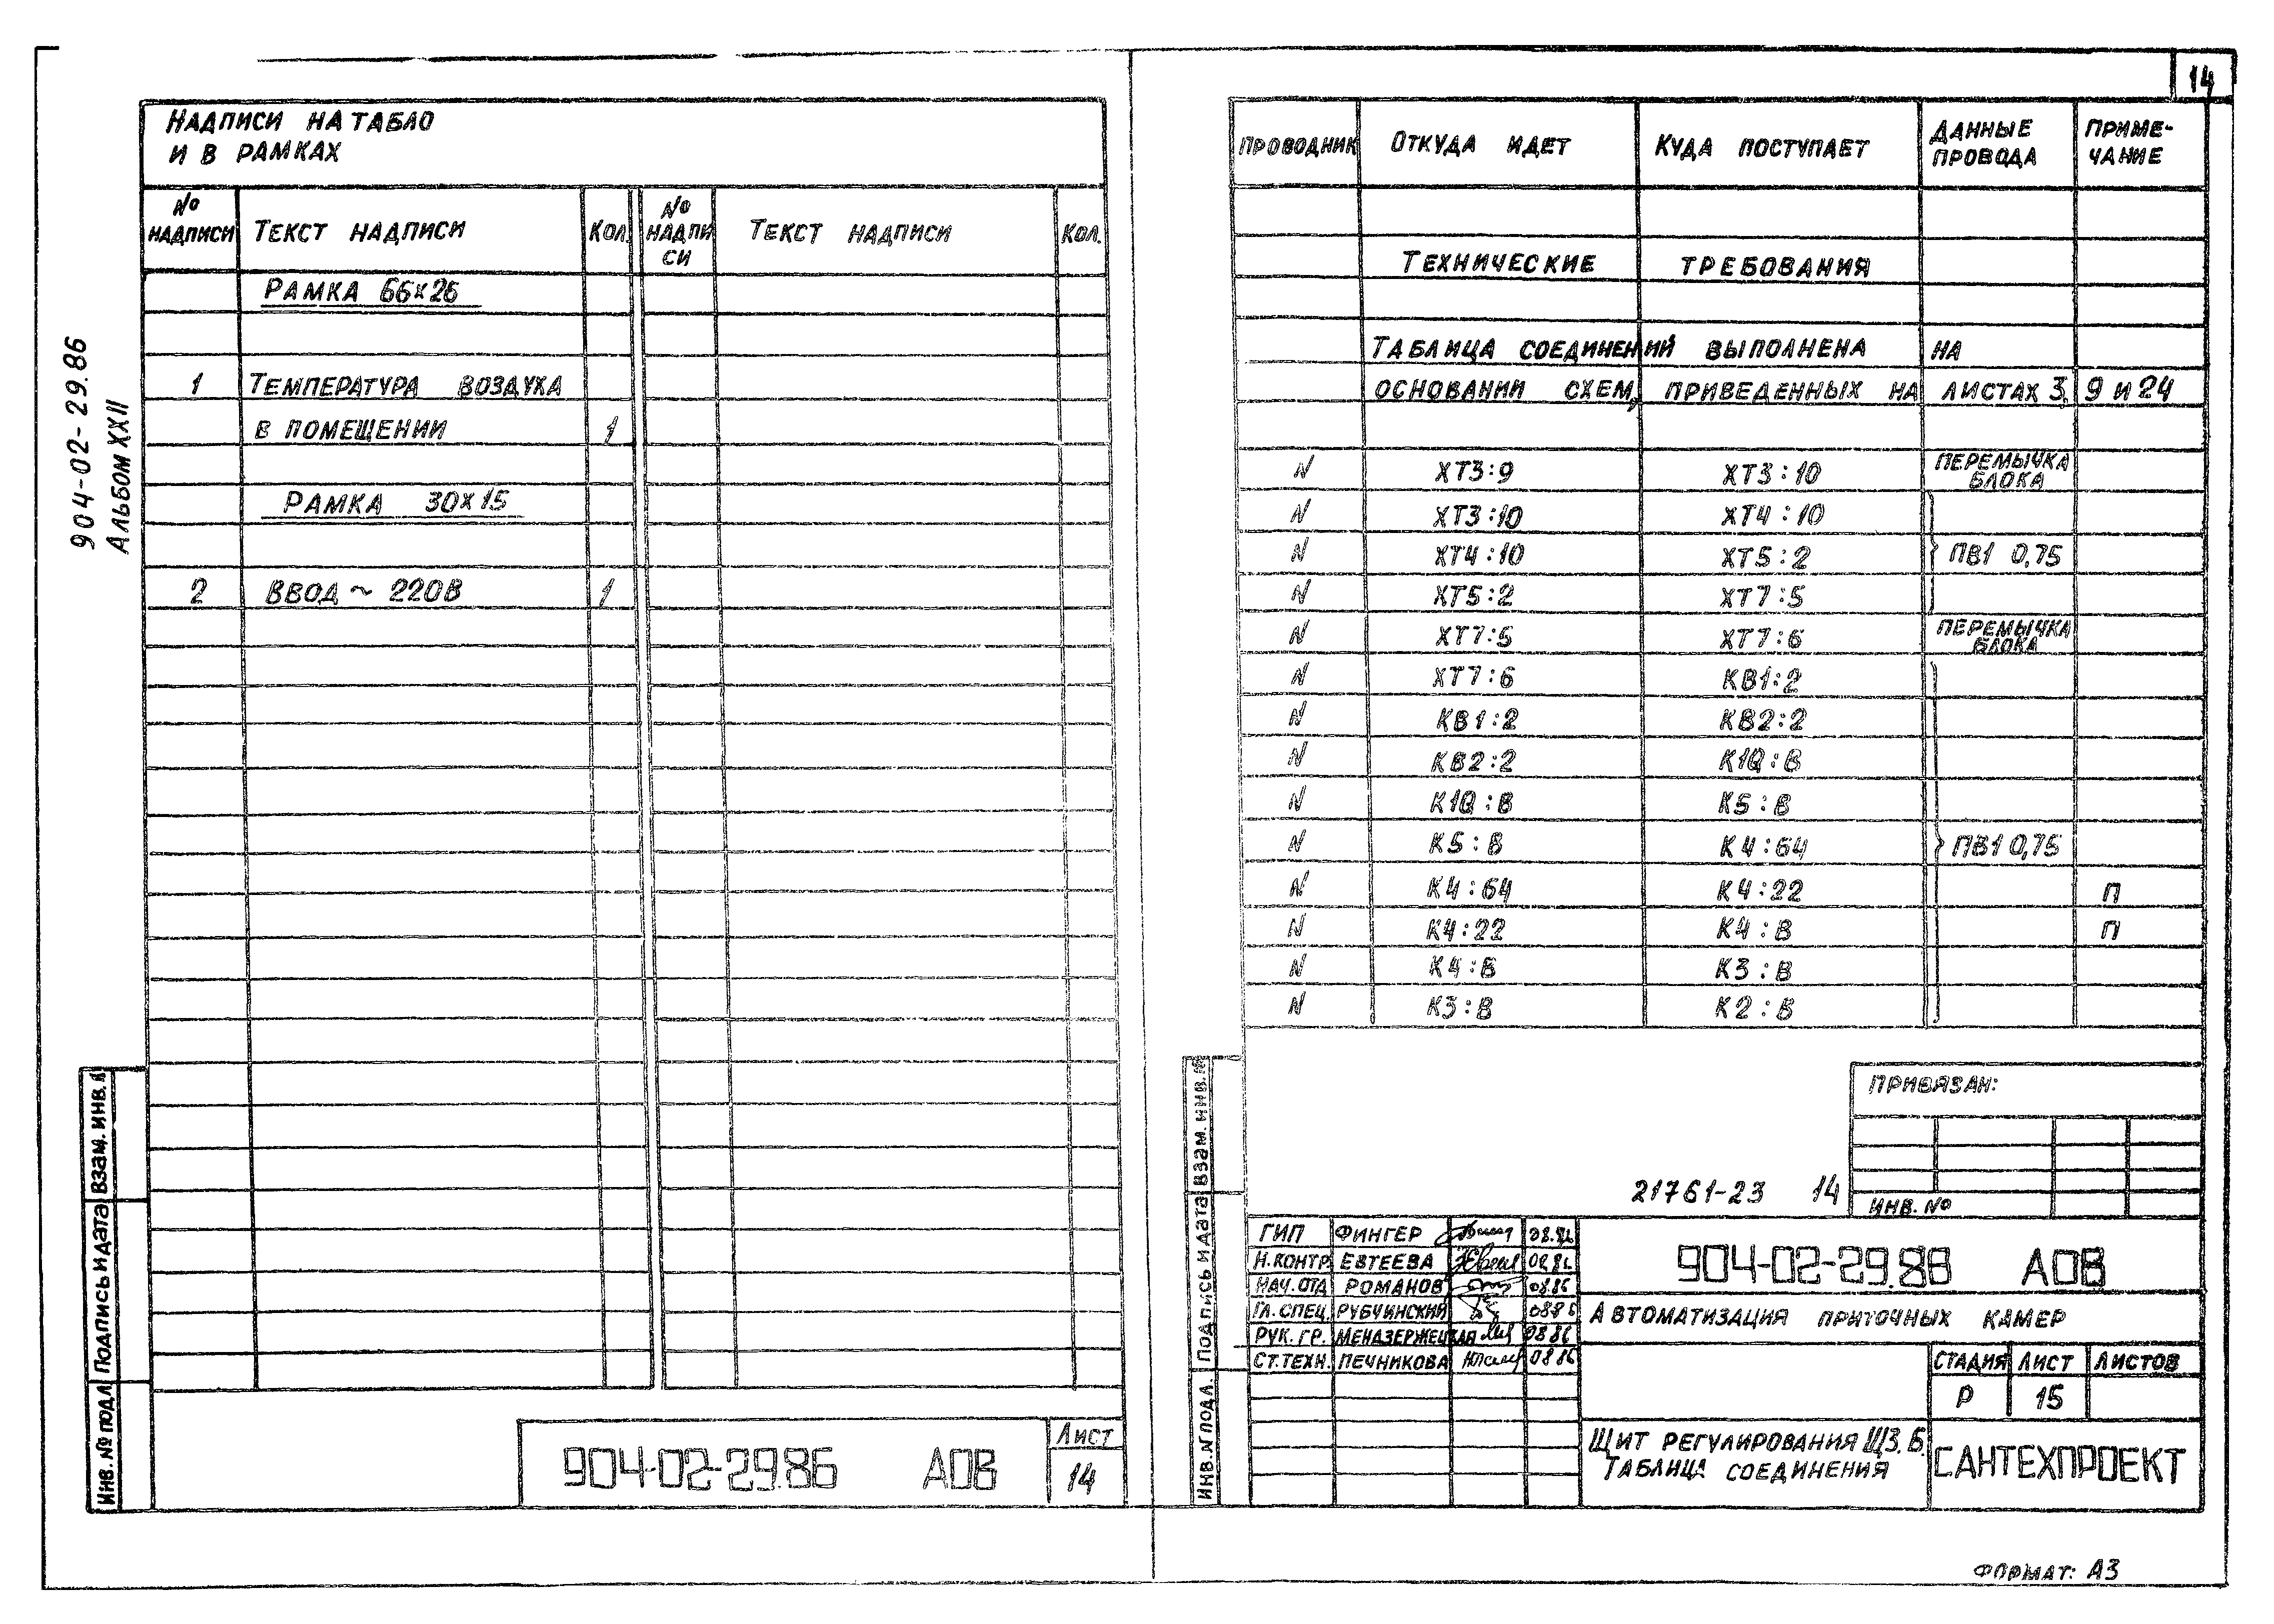 14
904-02-29.86
Альбом XXII
Надписи на табло
и в рамках
№ надписи Текст надписи Кол. № надписи Текст надписи Кол.
Рамка 66×26
1 Температура воздуха
в помещении 1
Рамка 30×15
2 Ввод ~ 220В 1
Инв. № подл Подпись и дата Взам. инв. №
904-02-29.86 АОВ
Лист
14
Проводник Откуда идет Куда поступает Данные провода Примечание
Технические требования
Таблица соединений выполнена на
основании схем, приведенных на листах 3, 9 и 24
N ХТ3:9 ХТ3:10 Перемычка блока
N ХТ3:10 ХТ4:10
N ХТ4:10 ХТ5:2 ПВ1 0,75
N ХТ5:2 ХТ7:5
N ХТ7:5 ХТ7:6 Перемычка блока
N ХТ7:6 КВ1:2
N КВ1:2 КВ2:2
N КВ2:2 К10:В
N К10:В К5:В
N К5:В К4:64 ПВ1 0,75
N К4:64 К4:22 П
N К4:22 К4:В П
N К4:В К3:В
N К3:В К2:В
Инв. № подл. Подпись и дата Взам. инв. №
Привязан:
Инв. №
21761-23 14
ГИП Фингер 08.86
Н.контр. Евтеева 08.86
Нач.отд Романов 08.86
Гл.спец. Рубчинский 08.86
Рук. гр. Мендзержецкая 08.86
Ст.техн. Печникова 08.86
904-02-29.86 АОВ
Автоматизация приточных камер
Стадия Лист Листов
Р 15
Щит регулирования Щ3.Б.
Таблица соединения
САНТЕХПРОЕКТ
Формат: А3